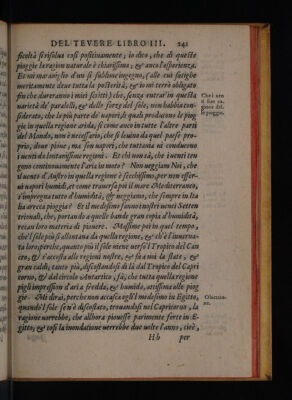 DEL TEVERE LIBRO III. 241
ficoltà si risolua così positiuamente; io dico, che di queste
pioggie la ragion naturale è chiarissima, & anco l'esperienza.
Et mi marauiglio d'un sì sublime ingegno, (alle cui fatighe
meritamente deue tutta la posterità, & io mi terrò obligato
sin che dureranno i miei scritti) che, senza entrar'in questa
varietà de' paralelli, & delle forze del sole, non habbia con-
siderato, che la più parte de' uapori, li quali producono le piog
gie in quella regione arida, sì come anco in tutte l'altre parti
del Mondo, non è necessario, che si leuino da quel paese pro-
prio, doue pioue, ma son uapori, che tuttauia ui conducono
i uenti da lontanissime regioni. Et chi non sà, che i uenti ten
gono continouamente l'aria in moto? Non neggiam Noi, che
il uento d'Austro in quella regione è secchissimo, per non esser-
ui uapori humidi, et come trauersa poi il mare Mediterraneo,
s'impregna tutto d'humidità, & ueggiamo, che sempre in Ita
lia arreca pioggia? Et il medesimo fanno tra essi i uenti Setten
trionali, che, portando a quelle bande gran copia d'humidità,
recan loro materia di piouere. Massime poi in quel tempo,
che'l sole più si allontana da quella regione, & ch'è l'inuerna-
ta loro; perche, quanto più il sole uiene uerso'l Tropico del Can
cro, & s'accosta alle regioni nostre, & fà a noi la state, &
gran caldi; tanto più, discostandosi di là dal Tropico del Capri
corno, & dal circolo Antartico, fà, che tutta quella regione
pigli impressïon d'aria fredda, & humida, attissima alle piog
gie. Mi dirai, perche non accasca egli l'medesimo in Egitto,
quando'l sole se n'è discostato, trouandosi nel Capricorno, la
ragione uorrebbe, che allhora piouesse parimente forte in E-
gitto, & così la inondatione uerrebbe due uolte l'anno, cioè,
Hh per
Obiettio-
ne.